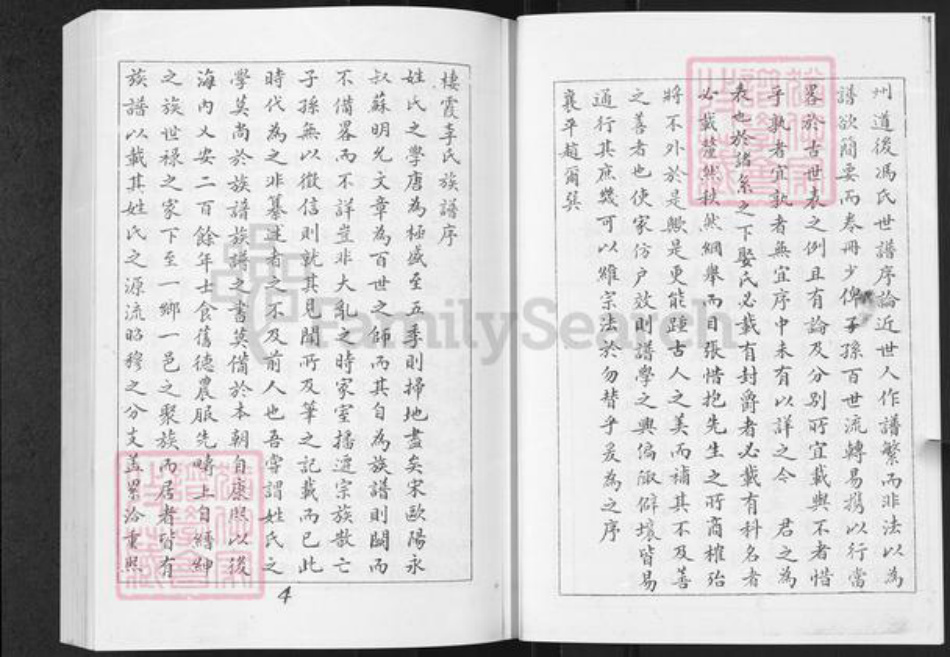 州道後馮氏世譜序論近世人作譜繁而非法以為
譜欲簡要而卷冊少俾子孫百世流轉易攜以行當
畧於古世表之例且有論及分別所宜載與不者惜
乎孰者宜孰者無宜序中未有以詳之今 君之為
表也於諸系之下娶氏必載有封爵者必載有科名者
必載釐然秩然綱舉而目張惜抱先生之所商榷殆
將不外於是歟是更能踵古人之美而補其不及善
之善者也使家仿户效則譜學之興偏陬僻壤皆易
通行其庶幾可以維宗法於勿替乎爰為之序
襄平趙爾巽
棲霞李氏族譜序
姓氏之學唐為極盛至五季則掃地盡矣宋歐陽永
叔蘇明允文章為百世之師而其自為族譜則闕而
不備畧而不詳豈非大亂之時家室播遷宗族散亡
子孫無以徵信則就其見聞所及筆之記載而已此
時代為之非纂述者之不及前人也吾甞謂姓氏之
學莫尚於族譜族譜之書莫備於本朝自康熙以後
海內乂安二百餘年士食舊德農服先疇上自縉紳
之族世祿之家下至一鄉一邑之聚族而居者皆有
族譜以載其姓氏之源流昭穆之分支蓋累洽重熙
4
FamilySearch